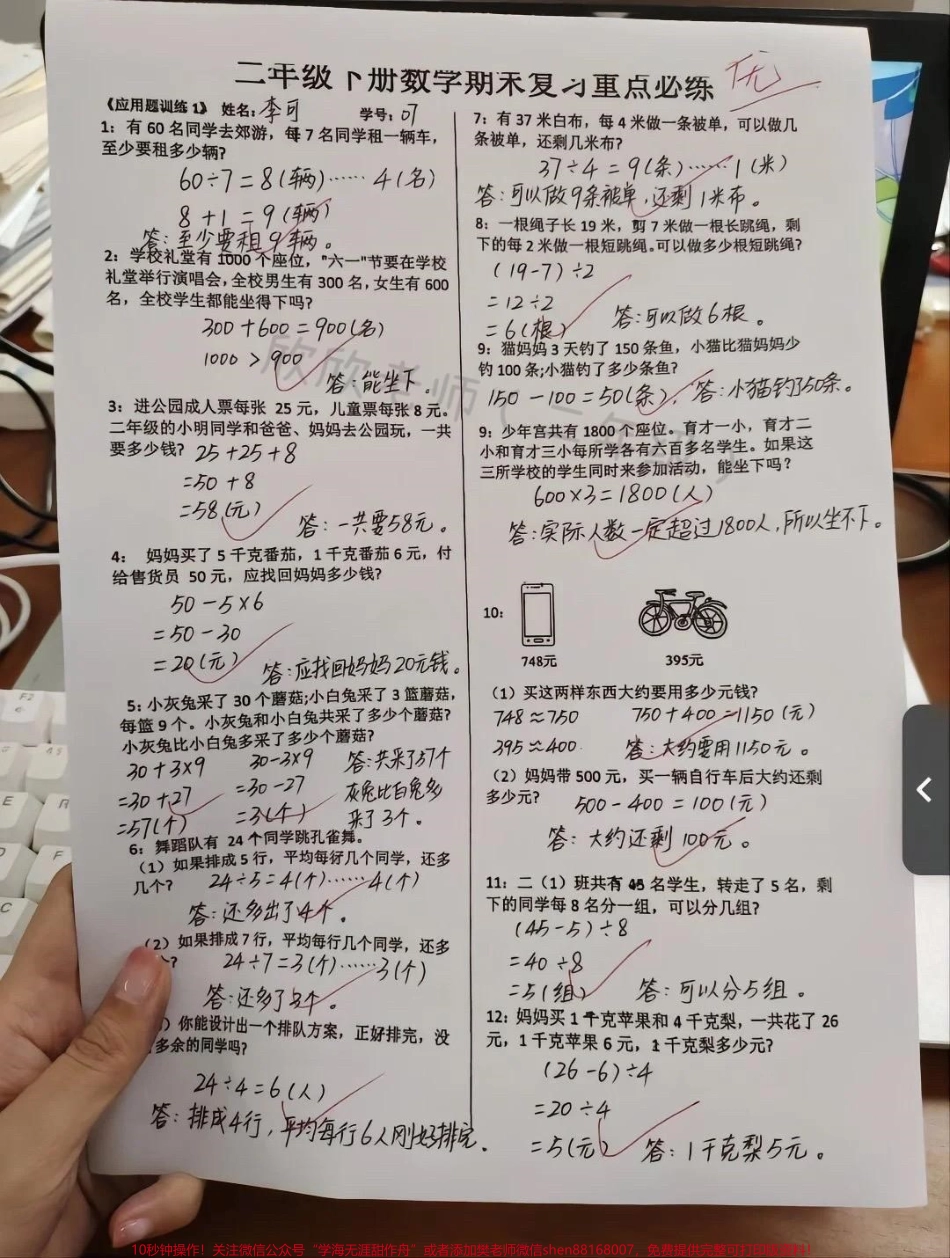 二年级下册数学期末复习重点必练
优
《应用题训练1》 姓名：李可 学号：07
1：有60名同学去郊游，每7名同学租一辆车，
至少要租多少辆？
60÷7=8(辆)……4(名)
8+1=9(辆)
答：至少要租9辆。
2：学校礼堂有1000个座位，"六一"节要在学校
礼堂举行演唱会，全校男生有300名，女生有600
名，全校学生都能坐得下吗？
300+600=900(名)
1000>900
答：能坐下。
3：进公园成人票每张 25元，儿童票每张8元。
二年级的小明同学和爸爸、妈妈去公园玩，一共
要多少钱？ 25+25+8
=50+8
=58(元)
答：一共要58元。
4： 妈妈买了5千克番茄，1千克番茄6元，付
给售货员 50元，应找回妈妈多少钱？
50-5×6
=50-30
=20(元)
答：应找回妈妈20元钱。
5：小灰兔采了30个蘑菇；小白兔采了3篮蘑菇，
每篮9个。小灰兔和小白兔共采了多少个蘑菇？
小灰兔比小白兔多采了多少个蘑菇？
30+3×9 30-3×9 答：共采了57个
=30+27 =30-27 灰兔比白兔多
=57(个) =3(个) 采了3个。
6：舞蹈队有 24个同学跳孔雀舞。
（1）如果排成5行，平均每行几个同学，还多
几个？ 24÷5=4(个)……4(个)
答：还多出了4个。
（2）如果排成7行，平均每行几个同学，还多
？ 24÷7=3(个)……3(个)
答：还多了3个。
）你能设计出一个排队方案，正好排完，没
多余的同学吗？
24÷4=6(人)
答：排成4行，平均每行6人刚好排完。
7：有37米白布，每4米做一条被单，可以做几
条被单，还剩几米布？
37÷4=9(条)……1(米)
答：可以做9条被单，还剩1米布。
8：一根绳子长19米，剪7米做一根长跳绳，剩
下的每2米做一根短跳绳。可以做多少根短跳绳？
(19-7)÷2
=12÷2
=6(根) 答：可以做6根。
9：猫妈妈3天钓了150条鱼，小猫比猫妈妈少
钓100条；小猫钓了多少条鱼？
150-100=50(条) 答：小猫钓了50条。
9：少年宫共有1800个座位。育才一小，育才二
小和育才三小每所学各有六百多名学生。如果这
三所学校的学生同时来参加活动，能坐下吗？
600×3=1800(人)
答：实际人数一定超过1800人，所以坐不下。
10：
748元 395元
（1）买这两样东西大约要用多少元钱？
748≈750 750+400=1150(元)
395≈400 答：大约要用1150元。
（2）妈妈带500元，买一辆自行车后大约还剩
多少元？ 500-400=100(元)
答：大约还剩100元。
11：二（1）班共有45名学生，转走了5名，剩
下的同学每8名分一组，可以分几组？
(45-5)÷8
=40÷8
=5(组) 答：可以分5组。
12：妈妈买1千克苹果和4千克梨，一共花了26
元，1千克苹果6元，1千克梨多少元？
(26-6)÷4
=20÷4
=5(元) 答：1千克梨5元。
欣欣老师（二年级）
10秒钟操作！关注微信公众号“学海无涯甜作舟”或者添加樊老师微信shen88168007，免费提供完整可打印版资料！